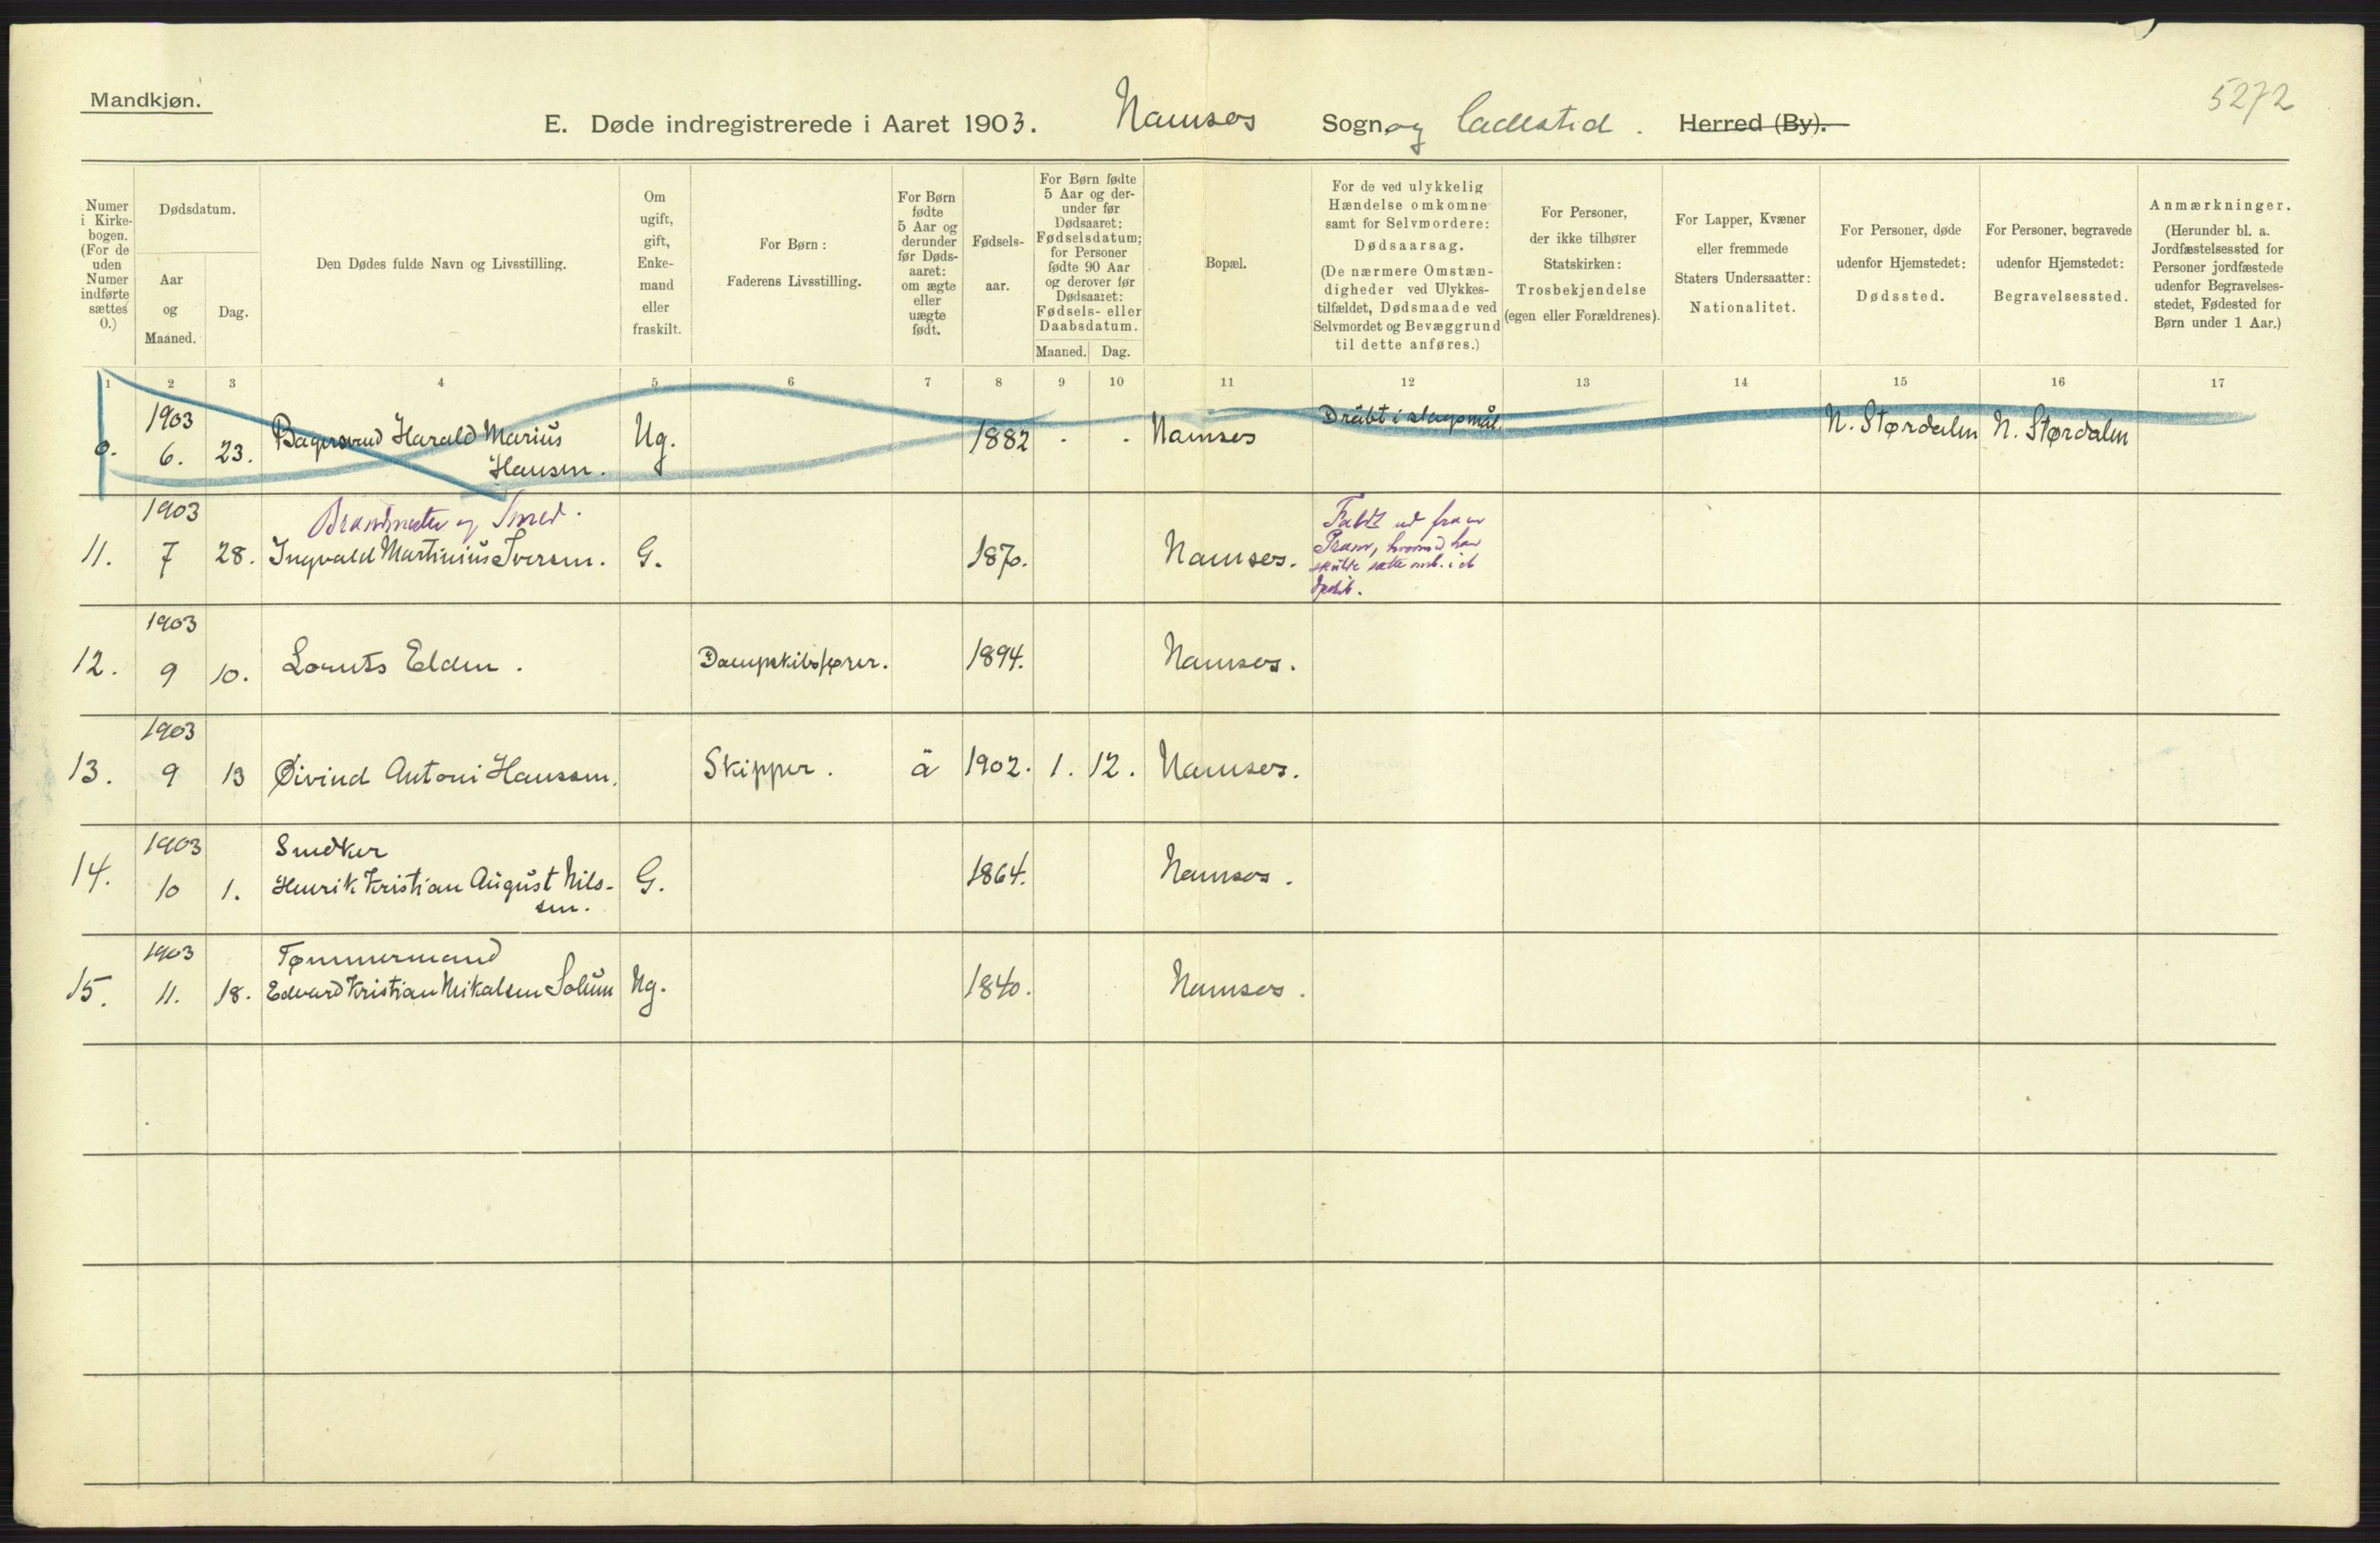 Mandkjøn.
5272
E. Døde indregistrerede i Aaret 1903. Namsos Sogn og Ladested. Herred (By).
Numer i Kirke-bogen. (For de uden Numer indførte sættes 0.)
Dødsdatum.
Aar og Maaned.
Dag.
Den Dødes fulde Navn og Livsstilling.
Om ugift, gift, Enke-mand eller fraskilt.
For Børn: Faderens Livsstilling.
For Børn fødte 5 Aar og derunder før Døds-aaret: om ægte eller uægte født.
Fødsels-aar.
For Børn fødte 5 Aar og der-under før Dødsaaret: Fødselsdatum; for Personer fødte 90 Aar og derover før Dødsaaret: Fødsels- eller Daabsdatum.
Maaned. Dag.
Bopæl.
For de ved ulykkelig Hændelse omkomne samt for Selvmordere: Dødsaarsag. (De nærmere Omstæn-digheder ved Ulykkes-tilfældet, Dødsmaade ved Selvmordet og Bevæggrund til dette anføres.)
For Personer, der ikke tilhører Statskirken: Trosbekjendelse (egen eller Forældrenes).
For Lapper, Kvæner eller fremmede Staters Undersaatter: Nationalitet.
For Personer, døde udenfor Hjemstedet: Dødssted.
For Personer, begravede udenfor Hjemstedet: Begravelsessted.
Anmærkninger. (Herunder bl. a. Jordfæstelsessted for Personer jordfæstede udenfor Begravelses-stedet, Fødested for Børn under 1 Aar.)
1 2 3 4 5 6 7 8 9 10 11 12 13 14 15 16 17
0. 1903 6. 23. Bagersvend Harald Marius Hansen. Ug. 1882 . . Namsos Dräbt i slagsmål. N. Størdalen N. Størdalen
11. 1903 7 28. Brandmester og Smed. Ingvald Martinius Iversen. G. 1870. Namsos. Faldt ud fra en Pram, hvormed han skulde sætte
12. 1903 9 10. Lornts Elden. Dampskibsfører. 1894. Namsos.
13. 1903 9 13 Øivind Antoni Hanssen. Skipper. ä 1902. 1. 12. Namsos.
14. 1903 10 1. Snedker Henrik Kristian August Nils-sen. G. 1864. Namsos.
15. 1903 11. 18. Tømmermand Edvard Kristian Mikalsen Solum Ug. 1840. Namsos.